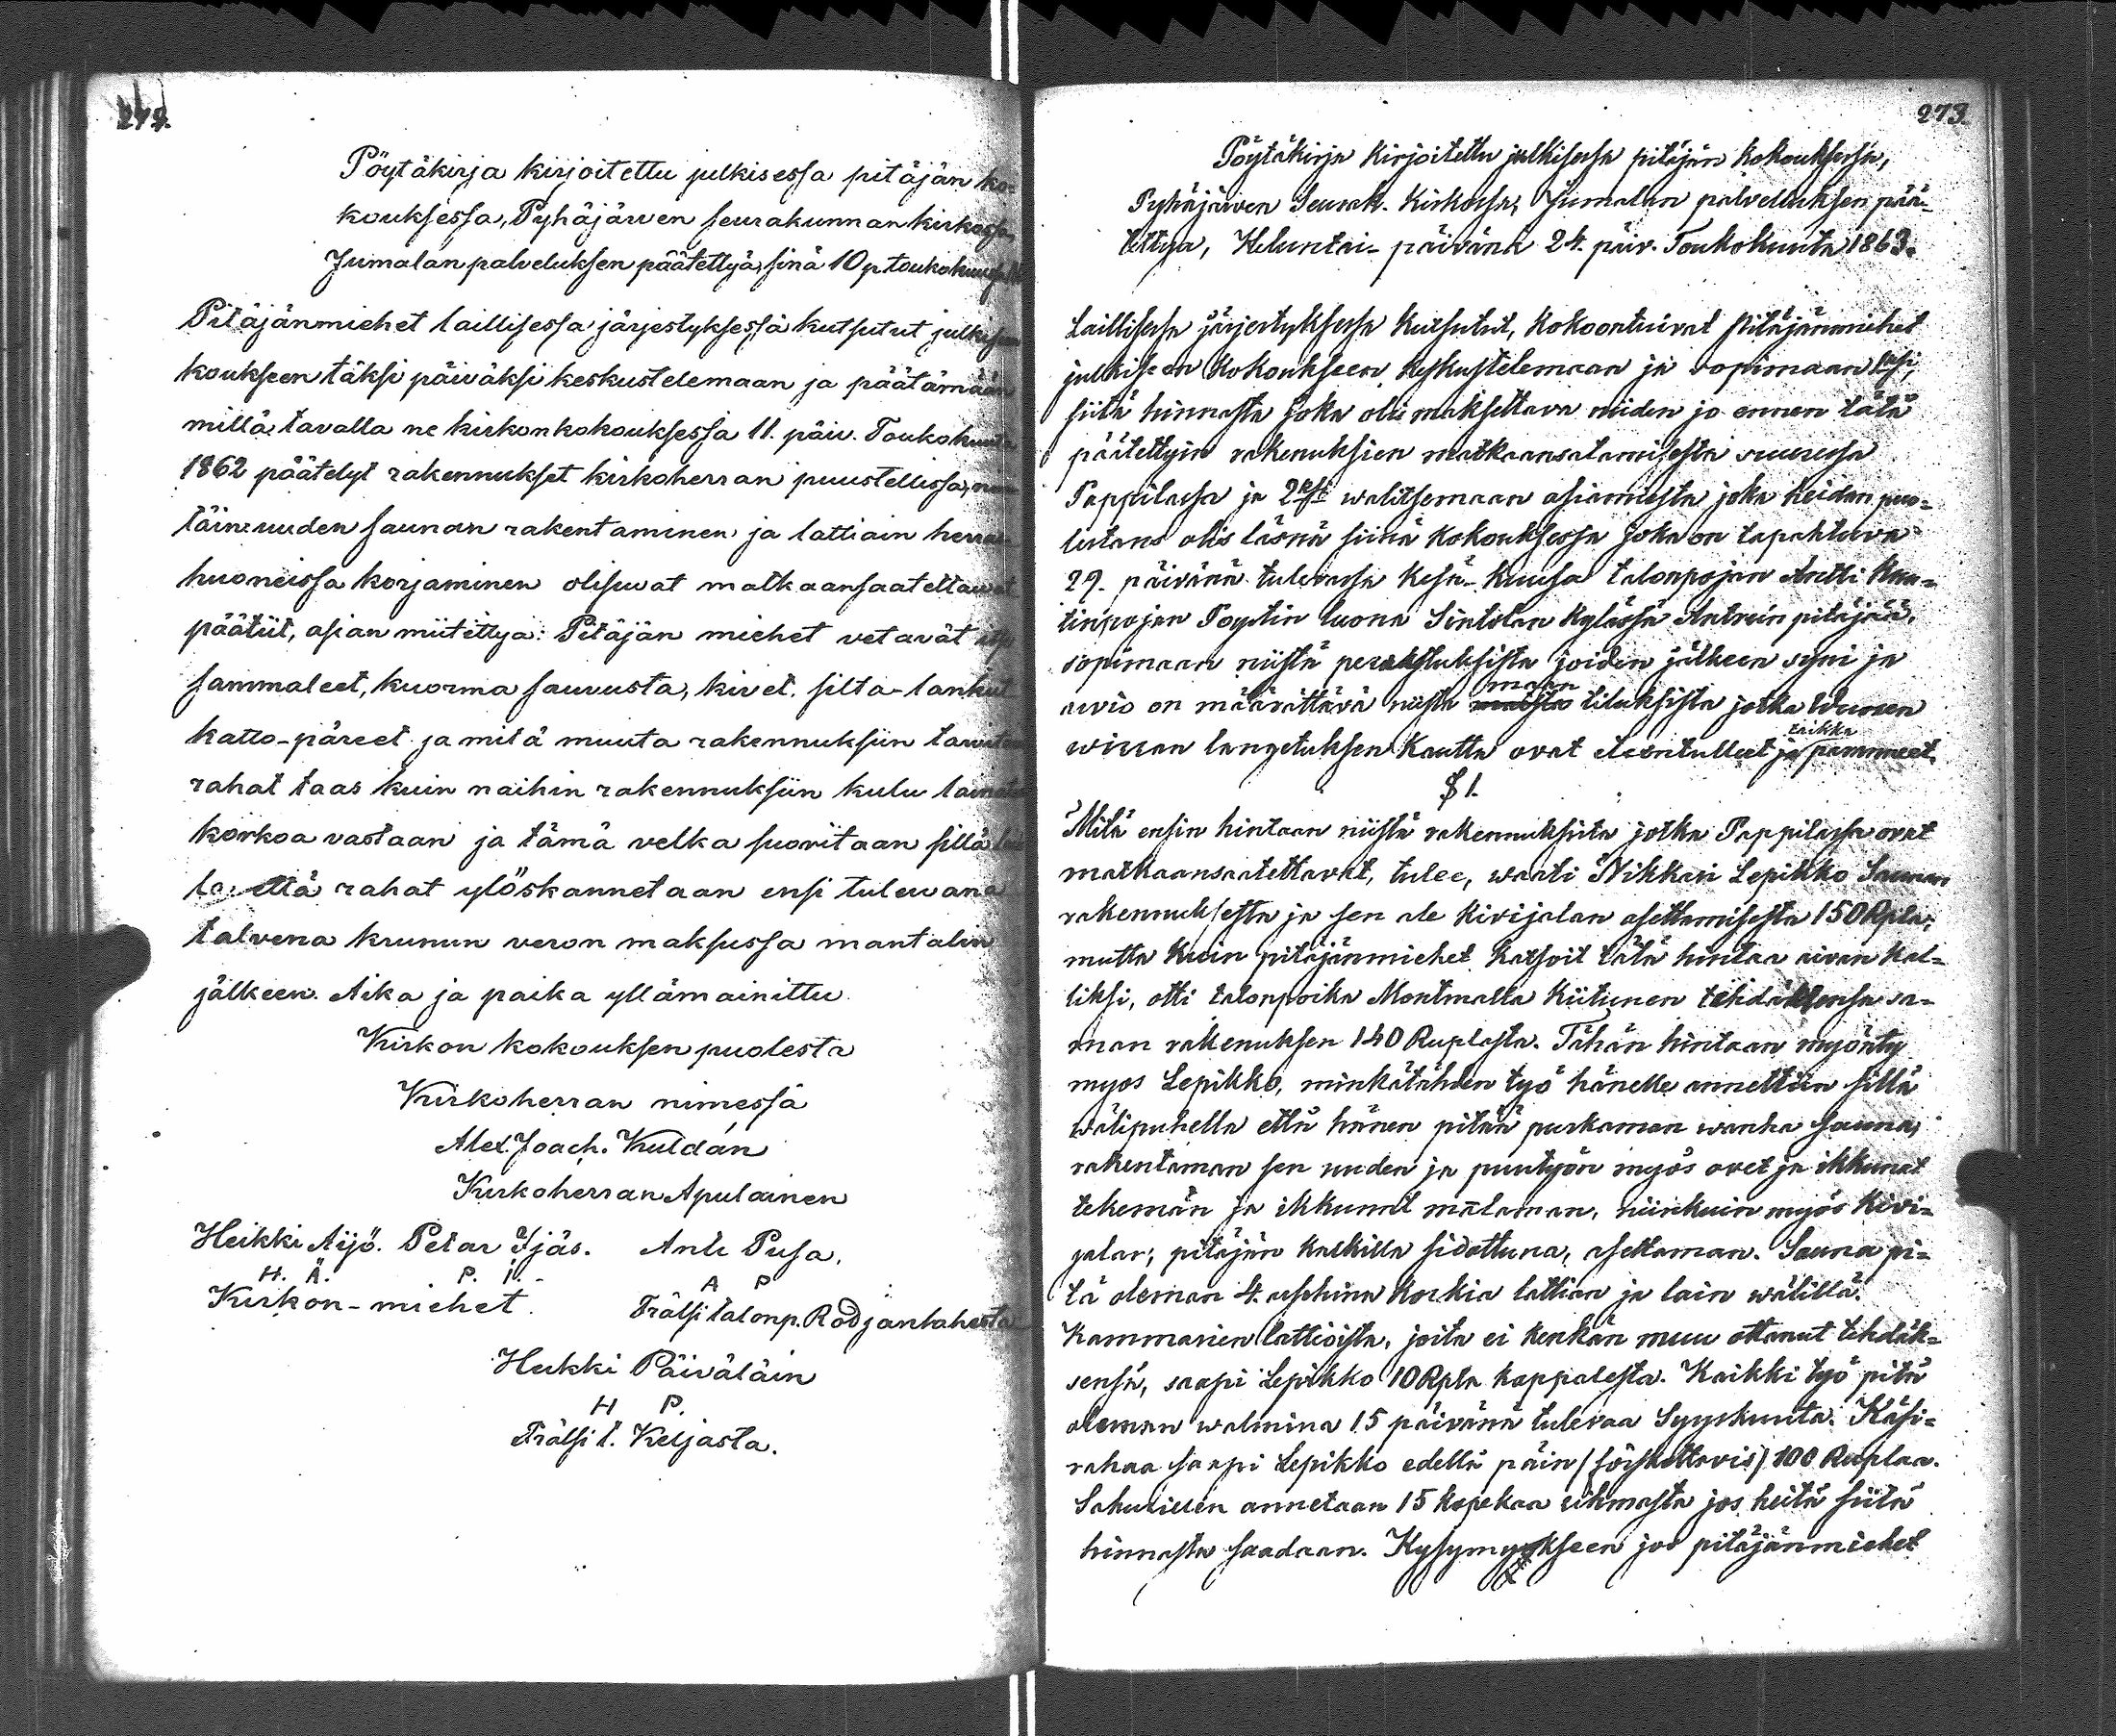 272.
Pöytäkirja kirjoitettu julkisessa pitäjän ko-
kouksessa, Pyhäjärven seurakunnan kirkossa,
Jumalan palveluksen päätettyä, sinä 10 p toukokuussa
Pitäjänmiehet laillisessa järjestyksessä kutsutut julkiseen
koukseen täksi päiväksi keskustelemaan ja päätämään
millä tavalla ne kirkonkokouksessa 11. päiv. Toukokuuta
1862 päätetyt rakennukset kirkoherran puustellissa,
täin uuden saunan rakentaminen ja lattiain herran
huoneissa korjaminen olisuvat matkaansaatettavat
päätiit, asian miitittya: Pitäjän miehet vetavät
sammaleet, kuorma sauvusta, kivet, silta-lankut
katto-päreet ja mitä muuta rakennuksiin tarvitaan
rahat taas kuin naihin rakennuksiin kulu lainataan
korkoa vastaan ja tämä velka suoritaan sillä
la, että rahat ylöskannetaan ensi tulewana
talvena krunun veron maksussa mantalin
jälkeen. Aika ja paika yllämainittu
Kirkon kokouksen puolesta
Kirkoherran nimessä
Alex. Joach. Kuldán
Kirkoherran Apulainen
Heikki Äijö. Petar Ijäs. Anti Pusa.
H. Ä. P. I. A P
Kirkon-miehet. Frälsi talonp. Rodjanlahesta
Heikki Päiväläin
H P.
Frälsi t. Keljasta.
273.
Pöytäkirja kirjoitettu julkisessa pitäjän kokouksessa,
Pyhäjärven Seurak. Kirkossa, Jumalan palveluksen pää-
tettyä, Heluntai-päivänä 24. päiv. Toukokuuta 1863.
Laillisessa järjestyksessä kutsutut, kokoontuivat pitäjänmiehet
julkiseen kokoukseen keskustelemaan ja sopimaan 1ksi,
siitä hinnasta joka olis maksettava niiden jo ennen tätä
päätettyin rakenuksien matkaansatamisesta suuressa
Pappilassa ja 2ksi walitsemaan asiamiestä joka heidän puo-
lestans olis läsnä siinä kokouksessa joka on tapahtuva
29. päivänä tulevassa Kesä-kuussa talonpojan Antti Kuu-
tinpojan Poystin luona Sintolan kylässä Antrein pitäjää,
sopimaan niistä perustuksista joiden jälkeen syni ja
arvio on määrättävä niistä maan tiluksista jotka Wuosen
wirran langetuksen kautta ovat eteentulleet ja taikka parannet.
§ 1.
Mitä ensin hintaan niistä rakennuksista jotka Pappilassa ovat
matkaansaatettavat, tulee, waati Nikkari Lepikko Saunan
rakennuksesta ja sen ale kivijalan asettamisesta 150 Rpla;
mutta kuin pitäjänmiehet katsoit tätä hintaa aivan kal-
liksi, otti talonpoika Montmalta Kiitunen tehdäksensä sa-
man rakenuksen 140 Ruplasta. Tähän hintaan myönty
myos Lepikko, minkätähden työ hänelle annettiin sillä
välipuhella että hänen pitää purkaman wanha sauna,
rakentaman sen uuden ja puutyön myös ovet ja ikkunat
tekemän ja ikkunat malaman, niinkuin myös kivi-
jalan, pitäjän kalkilla sidottuna, asettaman. Sauna pi-
tä oleman 4. arshina korkia lattian ja lain wälillä.
Kammarien lattioista, joita ei kenkän muu ottanut tehdäk-
sensä, saapi Lepikko 10 Rpla kappalesta. Kaikki työ pitä
oleman walmina 15 päivänä tulevaa Syyskuuta. Käsi-
rahaa saapi Lepikko edeltä päin (förskottsvis) 100 Ruplaa.
Sahurillen annetaan 15 kopekaa rihmasta jos heitä siitä
hinnasta saadaan. Kysymykseen jos pitäjänmiehet